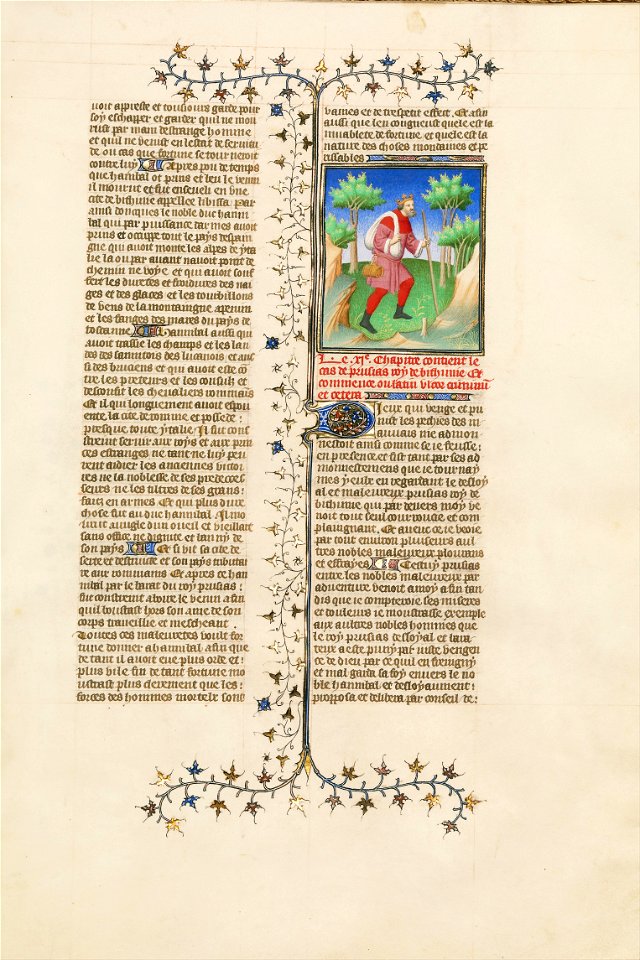 uoit appreste et tousiours garde pour
soy eschapper et garder quil ne mou
rust par main destrange homme
et quil ne venist en lestat de seruitu
de ou cas que fortune se tourneroit
contre luy Et apres pou de temps
que hanibal ot prins et beu le venin
il mourut et fut enseueli en vne
cite de bithinie appellee libissa Par
ainsi doncques le noble duc hanni
bal qui par puissance darmes auoit
prins et occupe tout le pays despai
gne qui auoit monte les alpes de yta
lie la ou par auant nauoit point de
chemin ne voye et qui auoit souf
fert les diuerses et froidures des nai
ges et des glaces et les tourbillons
de vens de la montaigne apenin
et les fanges des mares du pays de
toscanne Cest hannibal aussi qui
auoit trassie les champs et les lan
des des samnitois des lucanois et aus
si des bruciens et qui auoit este con
tre les preteurs et les consulz et
desconfit les chevaliers rommains
Et il qui longuement auoit espou
ente la cite de romme et possede
presque toute ytalie Il fut con
straint seruir aux roys et aux prin
ces estranges ne tant ne luy peu
rent aidier les anciennes victoi
res ne la noblesse de ses predeces
seurs ne les tiltres de ses grans
faiz en armes Et qui plus dure
chose fut au duc hannibal Il mo
rut auugle dun oueil et vieillart
sans office ne dignite et banny de
son pays Et si vit sa cite de
serte et destruite et son pays tributai
re aux rommains Et apres ce han
nibal par le barat du roy prusias
fut constraint a boire le venin afin
quil boutast hors son ame de son
corps traueillie et meschant
Toutes ces maleuretes voult for
tune donner a hannibal afin que
de tant il auoit eue plus orde et
plus vile fin de tant fortune mo
ustrast plus clerement que les
forces des hommes mortelz sont
vaines et de trespetit effect Et afin
aussi que len congneust quele est la
muablete de fortune et quele est la
nature des choses mondaines et pe
rissables
Le .XIe. Chapitre contient le
cas de prusias roy de bithinie Et
commence ou latin vltor
et cetera
Dieux qui venge et pu
nist les pechies des
mauuais me admon
nestoit ainsi comme se ie feusse
en presence et fist tant par ses ad
monnestemens que ie tournay
mes yeulx en regardant le desloy
al et maleureux prusias roy de
bithinie qui par deuers moy ve
noit tout seul courroucie et com
plaignant Et auec ce ie veoie
par tout environ pluseurs aul
tres nobles maleureux plourans
et esfrayes Cestuy prusias
entre les nobles maleureux par
aduenture venoit a moy afin tan
dis que ie compteroie ses miseres
et douleurs ie moustrasse exemple
aux aultres nobles hommes que
le roy prusias desloyal et bara
teux a este puny par iuste vengen
ce de dieu par ce quil enfreigny
et mal garda sa foy enuers le no
ble hannibal et desloyaument
proposa et delibera par conseil de